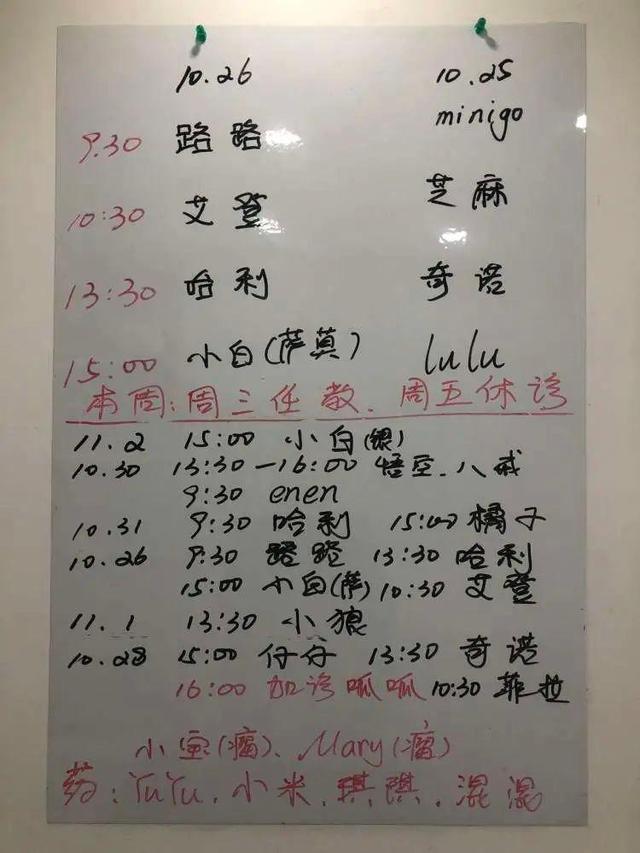 10.26 10.25
minigo
9:30 路路
10:30 艾登 芝麻
13:30 哈利 奇诺
15:00 小白(萨莫) lulu
本周:周三任教、周五休诊
11.2 15:00 小白(银)
10.30 13:30—16:00 悟空、八戒
9:30 enen
10.31 9:30 哈利 15:00 橘子
10.26 9:30 路路 13:30 哈利
15:00 小白(萨) 10:30 艾登
11.1 13:30 小狼
10.28 15:00 仔仔 13:30 奇诺
16:00 加诊呱呱 10:30 菲拉
小宝(瘤)、Mary(瘤)
药:YuYu、小米、琪琪、混混